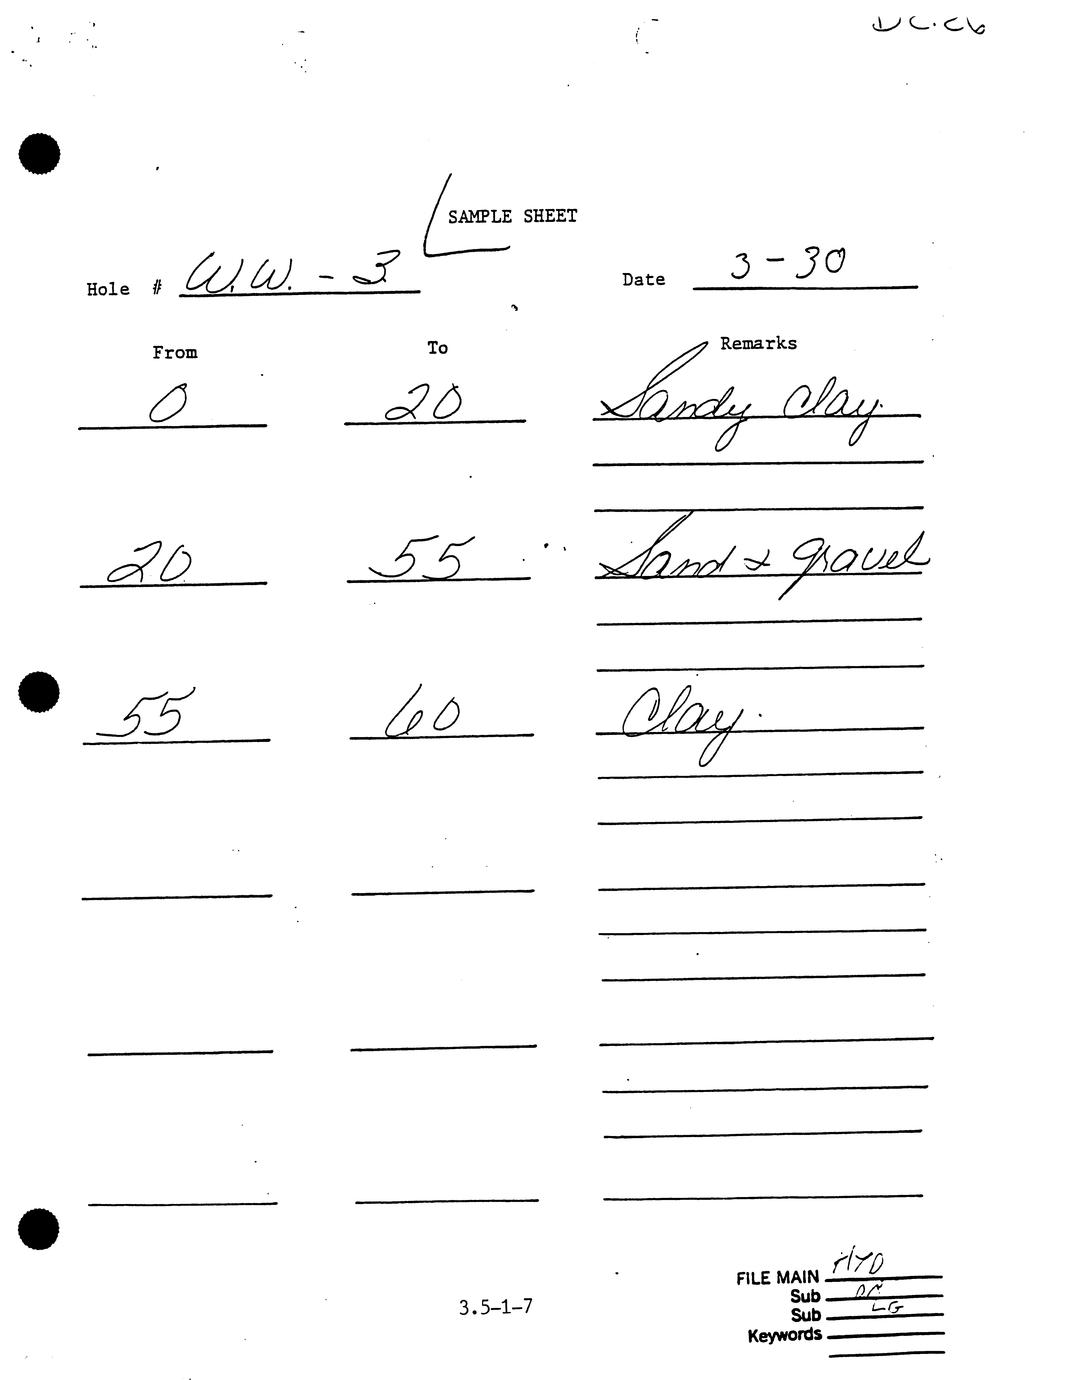 SAMPLE SHEET
Hole # W.W. - 3 Date 3-30
From To Remarks
0 20 Sandy Clay.
20 55 Sand & gravel
55 60 Clay.
FILE MAIN HYD
Sub
Sub LG
Keywords
3.5-1-7